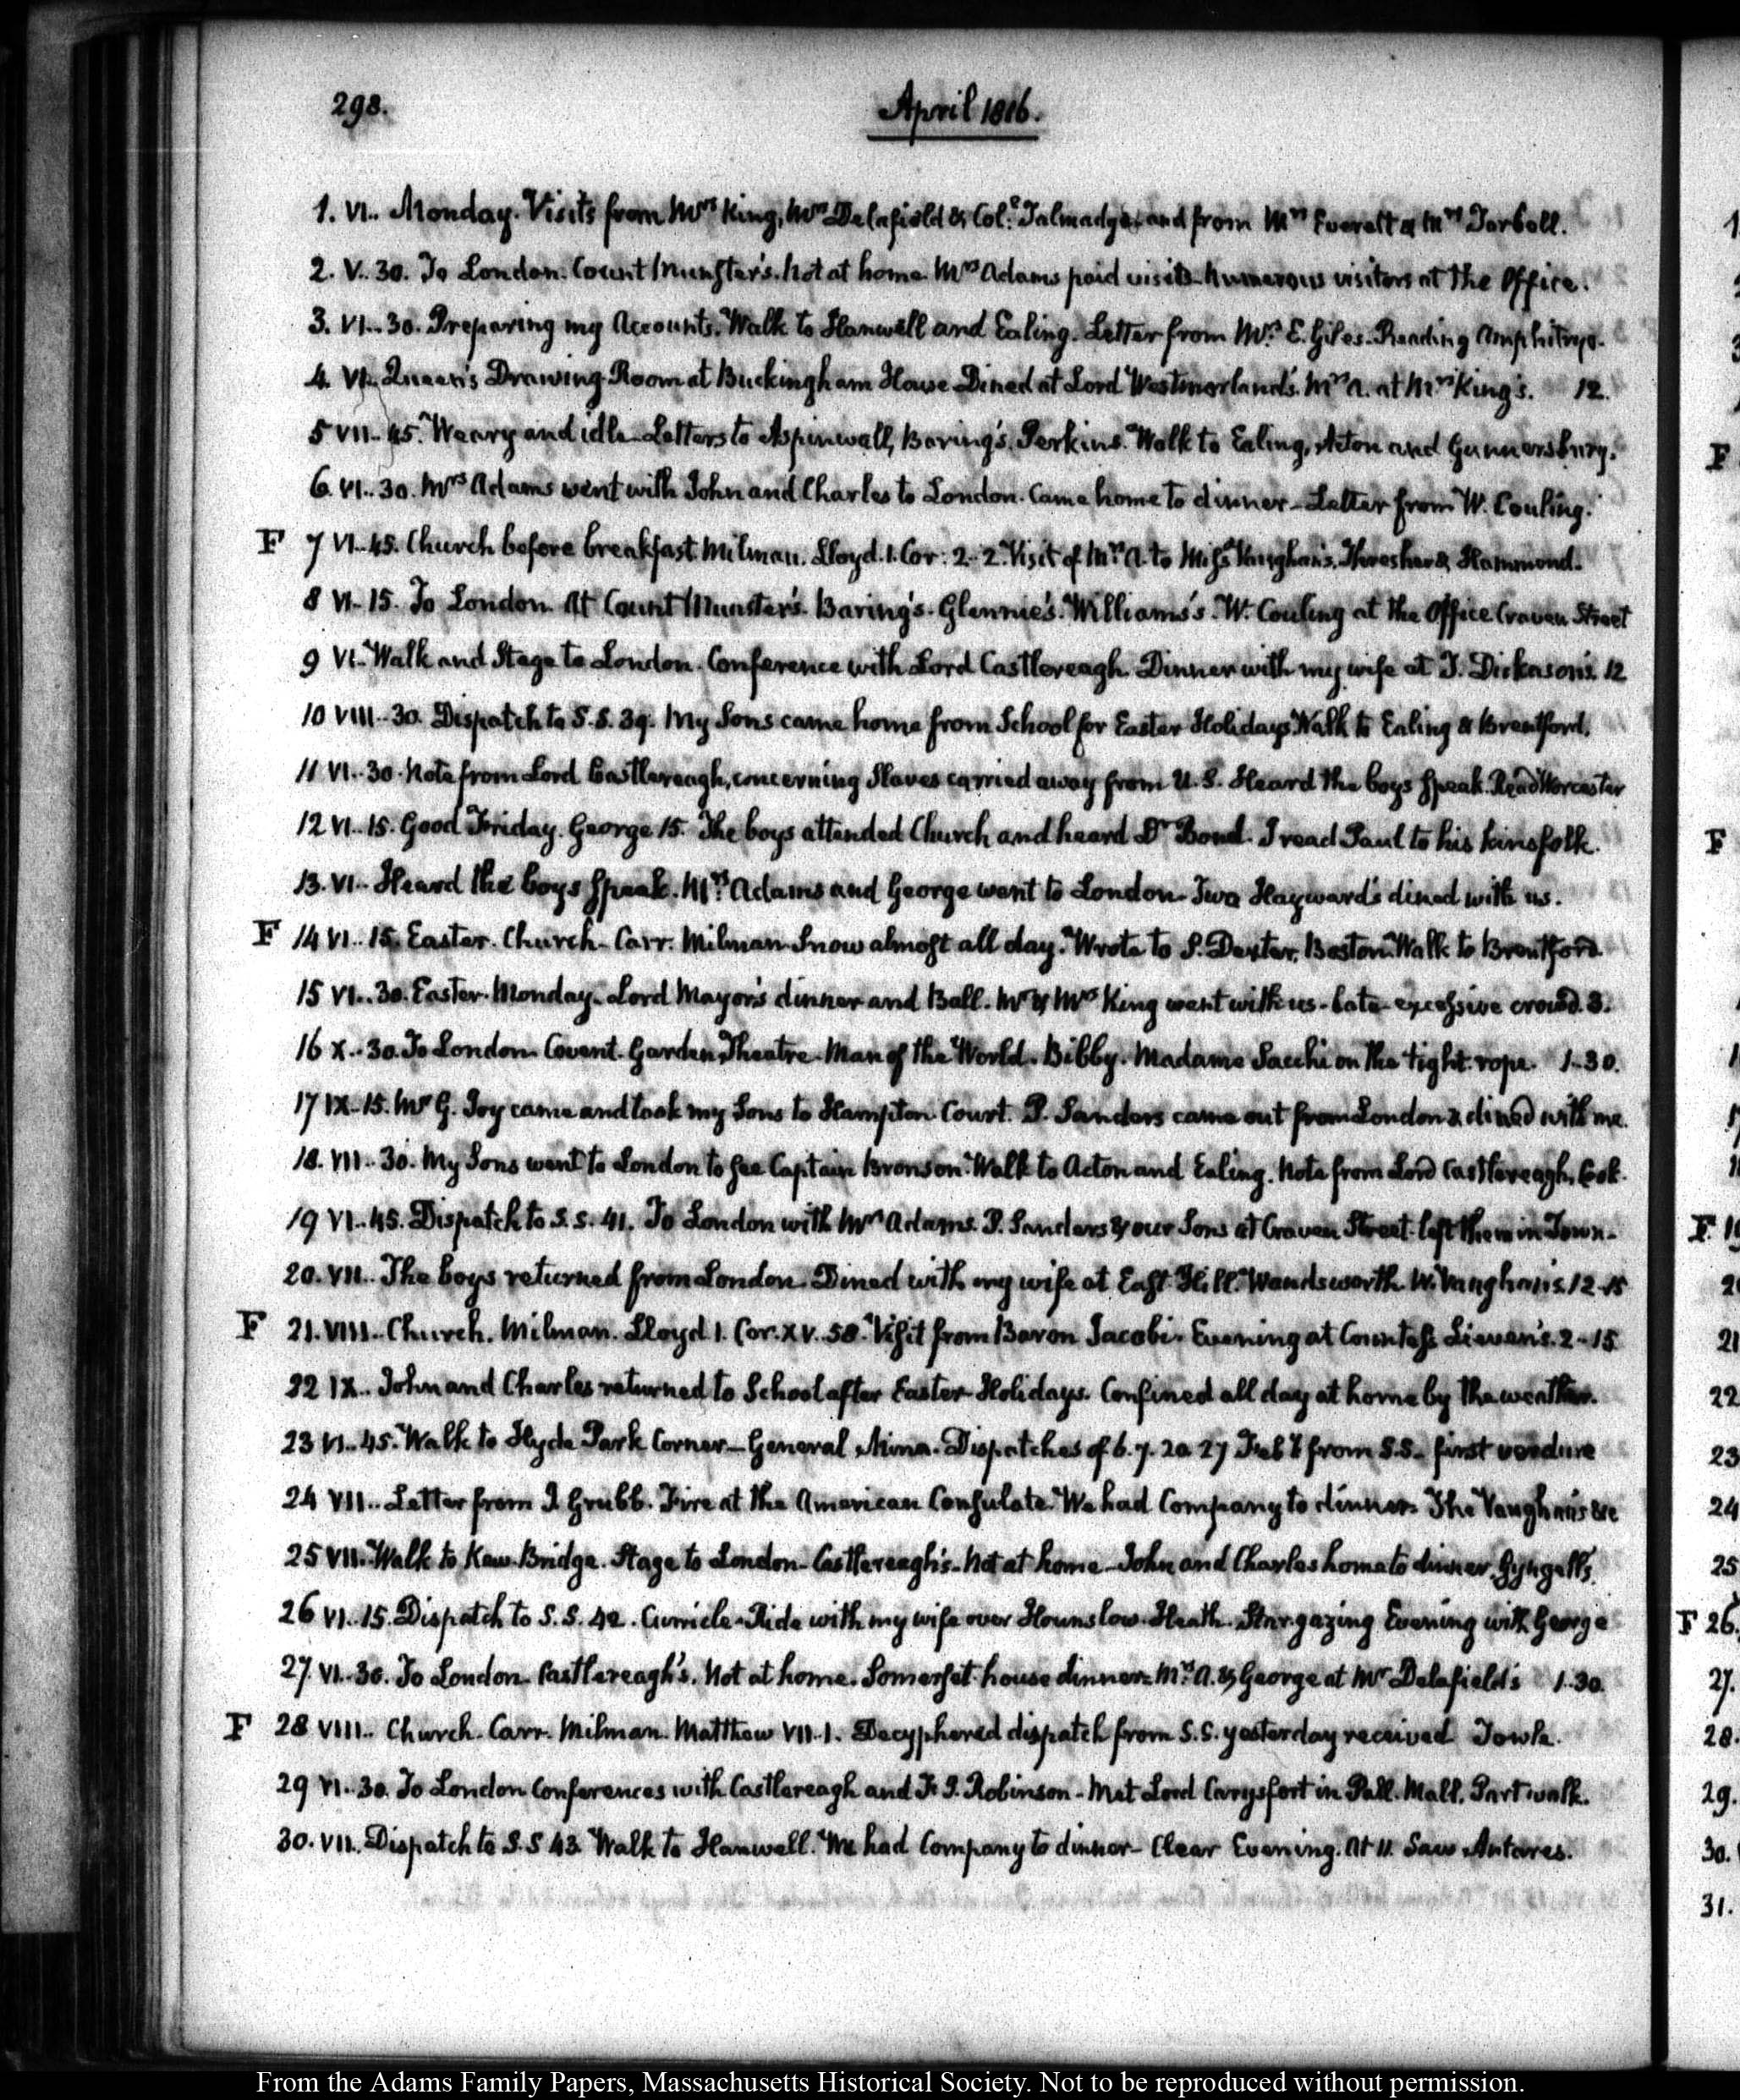 298.
April 1816.
1. VI.. Monday. Visits from Mrs King, Mrs Delafield & Col. Talmadge, and from Mrs Everett & Mrs Tarbell.
2. V.. 30. To London. Count Munster's. Not at home. Mrs Adams paid visits. Numerous visitors at the Office.
3. VI.. 30. Preparing my Accounts. Walk to Hanwell and Ealing. Letter from Mrs E. Giles. Reading Amphitryo.
4. VI.. Queen's Drawing-Room at Buckingham House Dined at Lord Westmorland's. Mrs A. at Mrs King's. 12.
5 VII.. 45. Weary and idle. Letters to Aspinwall, Baring's. Perkins. Walk to Ealing, Acton and Gunnersbury.
6. VI.. 30. Mrs Adams went with John and Charles to London. Came home to dinner. Letter from W. Couling.
F 7 VI.. 45. Church before breakfast. Milman. Lloyd. 1. Cor: 2. 2. Visit of Mrs A. to Miss Vaughan's. Thresher & Hammond.
8 VI.. 15. To London. At Count Munster's. Baring's. Glennie's. Williams's. W. Couling at the Office Craven Street
9 VI.. Walk and Stage to London. Conference with Lord Castlereagh. Dinner with my wife at T. Dickason's. 12
10 VIII.. 30. Dispatch to S.S. 39. My Sons came home from School for Easter Holidays. Walk to Ealing & Brentford.
11 VI.. 30. Note from Lord Castlereagh, concerning Slaves carried away from U.S. Heard the boys speak. Read Worcester
12 VI.. 15. Good Friday. George 15. The boys attended Church and heard Dr Bond. I read Paul to his kinsfolk.
13. VI.. Heard the boys speak. Mrs Adams and George went to London. Two Hayward's dined with us.
F 14 VI.. 15. Easter. Church. Carr. Milman. Snow almost all day. Wrote to S. Dexter. Boston. Walk to Brentford.
15 VI.. 30. Easter-Monday. Lord Mayor's dinner and Ball. Mr & Mrs King went with us. late. excessive crowd. 3.
16 X.. 30. To London. Covent-Garden Theatre. Man of the World. Bibby. Madame Sacchi on the tight-rope. 1-30.
17 IX.. 15. Mr G. Joy came and took my Sons to Hampton-Court. P. Sanders came out from London & dined with me.
18. VII.. 30. My Sons went to London to see Captain Bronson. Walk to Acton and Ealing. Note from Lord Castlereagh. Cook.
19 VI.. 45. Dispatch to S.S. 41. To London with Mrs Adams. P. Sanders & our Sons at Craven Street. left them in Town.
20. VII.. The boys returned from London. Dined with my wife at East-Hill. Wandsworth. W. Vaughan's. 12-15
F 21. VIII.. Church. Milman. Lloyd 1. Cor. XV. 58. Visit from Baron Jacobi. Evening at Countess Lieven's. 2-15
22 IX.. John and Charles returned to School after Easter-Holidays. Confined all day at home by the weather.
23 VI.. 45. Walk to Hyde Park Corner. General Mina. Dispatches of 6. 7. 20. 27 Feby from S.S. first verdure
24 VII.. Letter from J. Grubb. Fire at the American Consulate. We had Company to dinner. The Vaughan's &c
25 VII. Walk to Kew-Bridge. Stage to London. Castlereagh's. Not at home. John and Charles home to dinner. Gyngell's.
26 VI.. 15. Dispatch to S.S. 42. Curricle-Ride with my wife over Hounslow-Heath. Star-gazing Evening with George
27. VI.. 30. To London. Castlereagh's. Not at home. Somerset-house dinner. Mrs A. & George at Mr Delafield's 1-30.
F 28 VIII.. Church. Carr. Milman. Matthew VII. 1. Decyphered dispatch from S.S. yesterday received
29 VI.. 30. To London Conferences with Castlereagh and F. J. Robinson. Met Lord Carysfort in Pall-Mall. Part walk.
30. VII. Dispatch to S.S 43. Walk to Hanwell. We had Company to dinner. Clear Evening. At 11. Saw Antares.
From the Adams Family Papers, Massachusetts Historical Society. Not to be reproduced without permission.